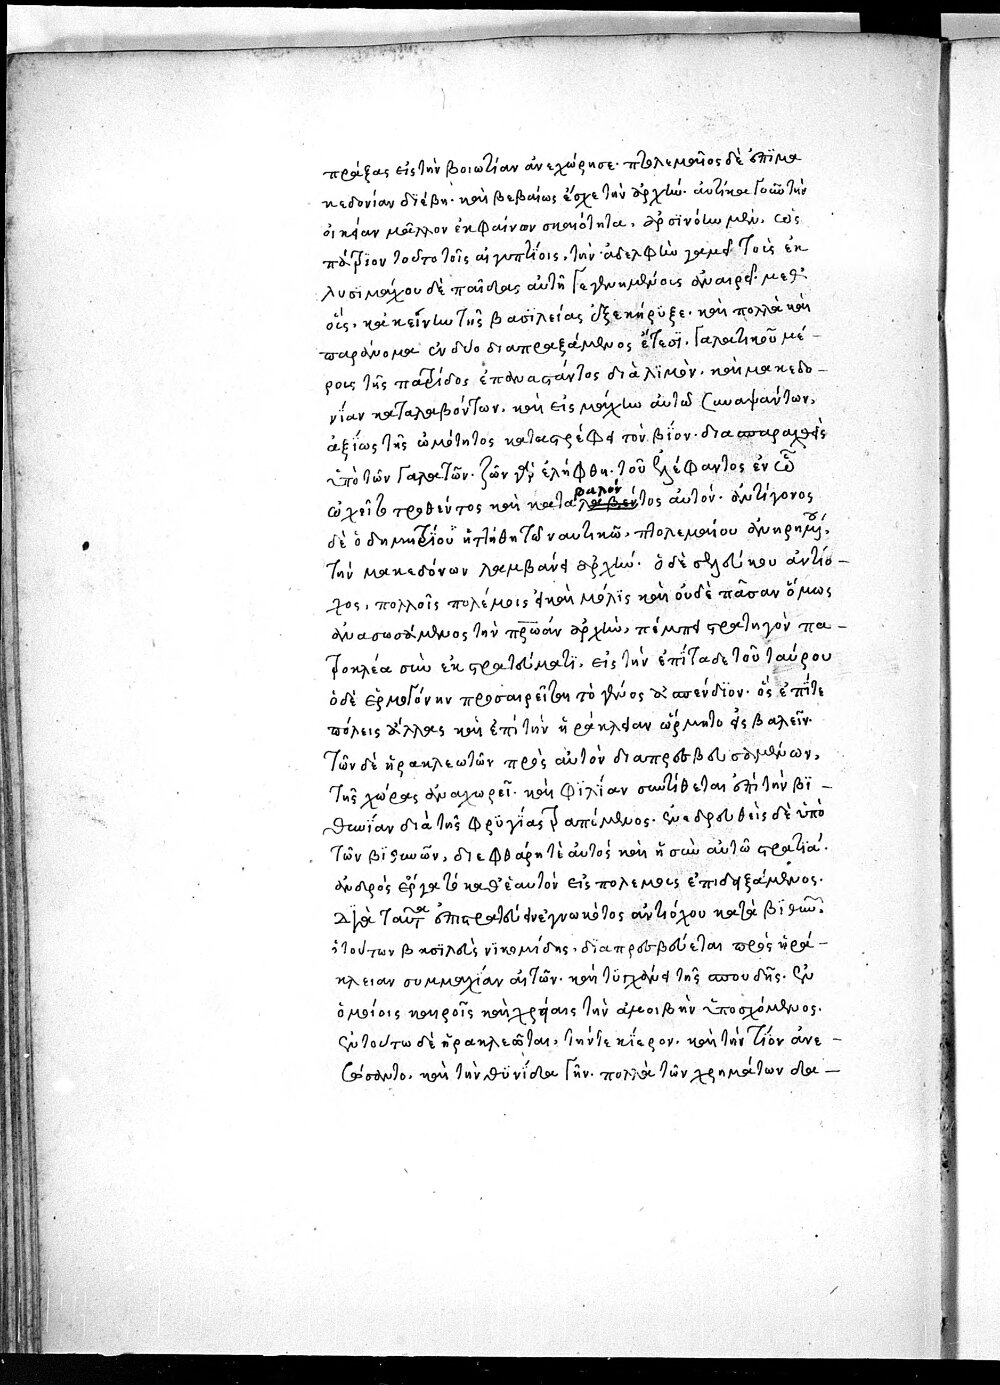 πράξας εἰς τὴν βοιωτίαν ἀνεχώρησε. πτολεμαῖος δὲ ἐπὶ μα
κεδονίαν διέβη. καὶ βεβαίως ἔσχε τὴν ἀρχήν. αὐτίκα γοῦν τὴν
οἰκείαν μᾶλλον ἐκφαίνων σκαιότητα, ἀρσινόην μὲν, ὡς
πάτριον τοῦτο τοῖς αἰγυπτίοις, τὴν ἀδελφὴν γαμεῖ τοὺς ἐκ
λυσιμάχου δὲ παῖδας αὐτῇ γεγενημένους ἀναιρεῖ. μεθ'
οὓς, κἀκείνην τῆς βασιλείας ἐξεκήρυξε. καὶ πολλὰ καὶ
παράνομα ἐν δύο διαπραξάμενος ἔτεσι, γαλατικοῦ μέ-
ρους τῆς πατρίδος ἐπαναστάντος διὰ λιμὸν, καὶ μακεδο-
νίαν καταλαβόντων, καὶ εἰς μάχην αὐτῷ συναψάντων,
ἀξίως τῆς ὠμότητος καταστρέφει τὸν βίον. διασπαραχθεὶς
ὑπὸ τῶν γαλατῶν. ζῶν γὰρ ἐλήφθη. τοῦ ἐλέφαντος ἐν ᾧ
ὠχεῖτο τρωθέντος καὶ καταβαλόντος αὐτὸν. ἀντίγονος
δὲ ὁ δημητρίου ἡττηθεὶς τῷ ναυτικῷ, πτολεμαίου ἀνῃρημένου,
τὴν μακεδόνων λαμβάνει ἀρχήν. ὁ δὲ σελεύκου ἀντίο-
χος, πολλοῖς πολέμοις εἰ καὶ μόλις καὶ οὐδὲ πᾶσαν ὅμως
ἀνασωσάμενος τὴν πατρῴαν ἀρχὴν, πέμπει στρατηγὸν πα-
τροκλέα σὺν ἐκστρατεύματι, εἰς τὴν ἐπίταδε τοῦ ταύρου
ὁ δὲ ἑρμογένην προσαιρεῖται τὸ γένος ἀσπένδιον. ὃς ἐπί τε
πόλεις ἄλλας καὶ ἐπὶ τὴν ἡράκλειαν ὥρμητο εἰσβαλεῖν.
τῶν δὲ ἡρακλεωτῶν πρὸς αὐτὸν διαπρεσβευσαμένων,
τῆς χώρας ἀναχωρεῖ. καὶ φιλίαν συντίθεται ἐπὶ τὴν βι-
θυνίαν διὰ τῆς φρυγίας τραπόμενος. ἐνεδρευθεὶς δὲ ὑπὸ
τῶν βιθυνῶν, διεφθάρη τὲ αὐτός καὶ ἡ σὺν αὐτῷ στρατιά.
ἀνδρὸς ἔργα τὸ καθ' ἑαυτὸν εἰς πολεμίους ἐπιδειξάμενος.
διὰ ταῦτα ἐπιστρατεύειν ἐγνωκότος ἀντιόχου κατὰ βιθυνῶν,
ὁ τούτων βασιλεὺς νικομήδης, διαπρεσβεύεται πρὸς ἡρά-
κλειαν συμμαχίαν αἰτῶν. καὶ τυγχάνει τῆς σπουδῆς. ἐν
ὁμοίοις καιροῖς καὶ χρείαις τὴν ἀμοιβὴν ὑποσχόμενος.
ἐν τούτω δὲ ἡρακλεῶται, τήν τε κίερον. καὶ τὴν τῖον ἀνε-
σώσαντο, καὶ τὴν θυνίδα γῆν. πολλὰ τῶν χρημάτων δα-